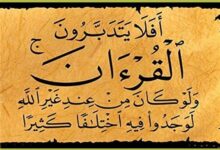 أَفَلَا يَتَدَبَّرُونَ
الْقُرْءَانَ ۚ
وَلَوْ كَانَ مِنْ عِندِ غَيْرِ اللَّهِ
لَوَجَدُوا فِيهِ اخْتِلَافًا كَثِيرًا